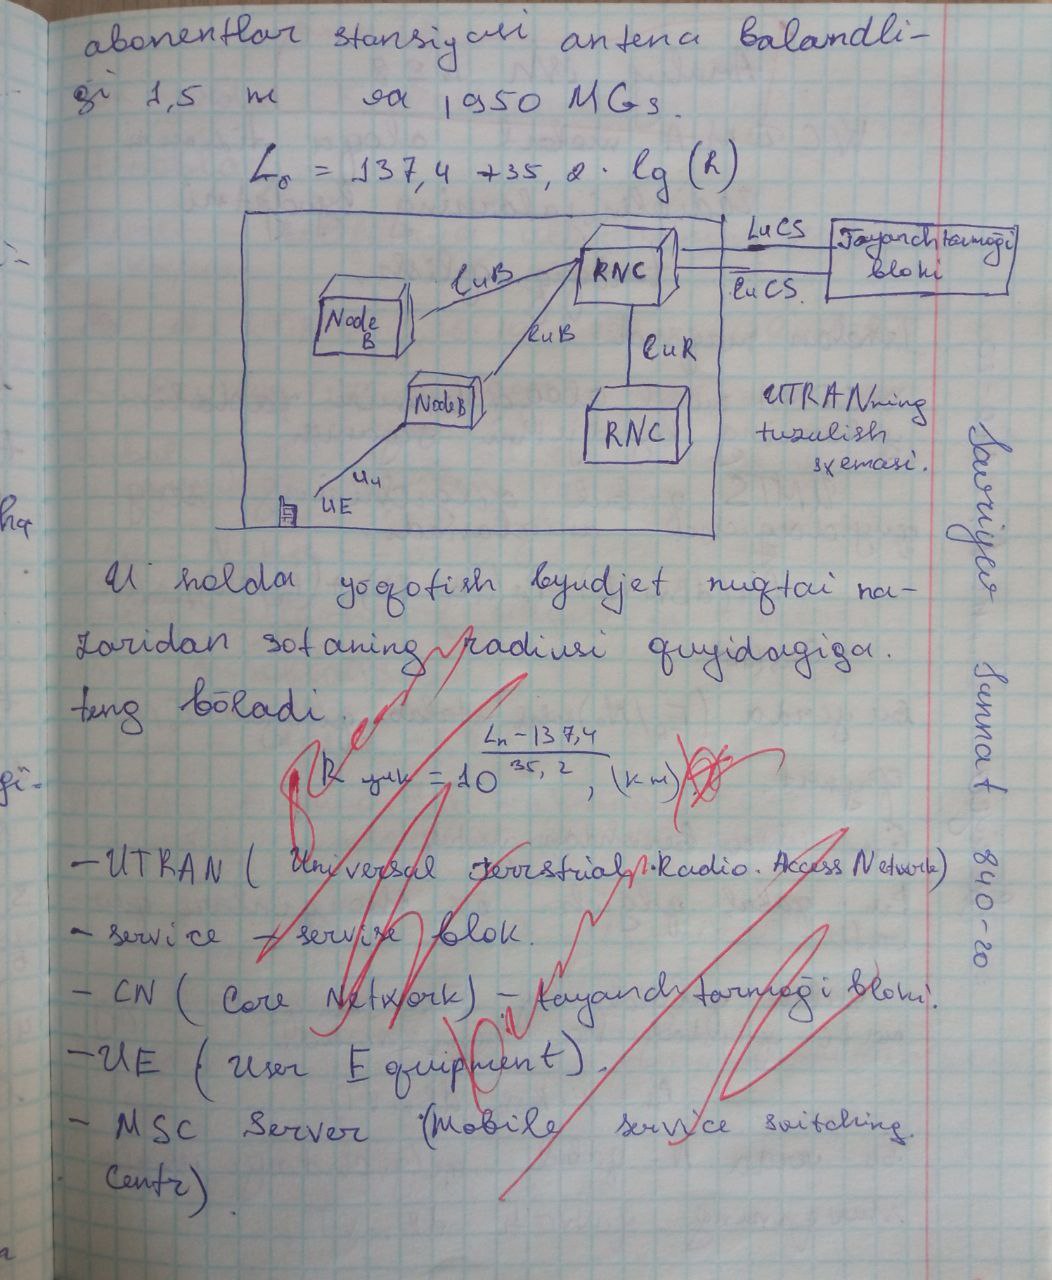 abonentlar stansiyasi antena balandli-
gi 1,5 m va 1950 MGs.
L₀ = 137,4 + 35,2 · lg (R)
IuCS
Tayanch tarmoği
bloki
RNC
IuB
IuCS.
Node
B
IuB
IuR
NodeB
RNC
UTRANning
tuzulish
sxemasi.
Uu
UE
U holda yōqotish byudjet nuqtai na-
zaridan sotaning radiusi quyidagiga.
teng bōladi.
R = 10^(Lₙ-137,4 / 35,2), (km)
- UTRAN ( Universal Terrstrial Radio. Access Network)
- service - servise blok.
- CN ( Core Network) - tayanch tarmoği bloki.
- UE ( User Equipment).
- MSC Server (Mobile service switching.
Centr).
Sunnat 840-20